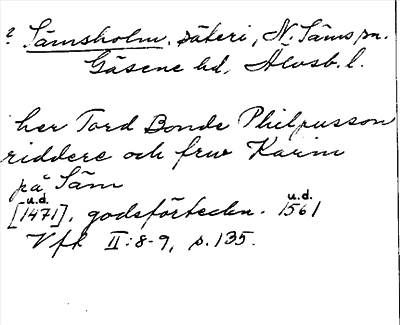 ? Sämsholm, säteri, N. Säms sn.
Gäsene hd, Älvsb. l.
her Tord Bonde Philpusson
riddere och frw Karin
på Säm
[1471], u.d. godsförteckn. 1561 u.d.
Vfk II:8-9, s. 135.